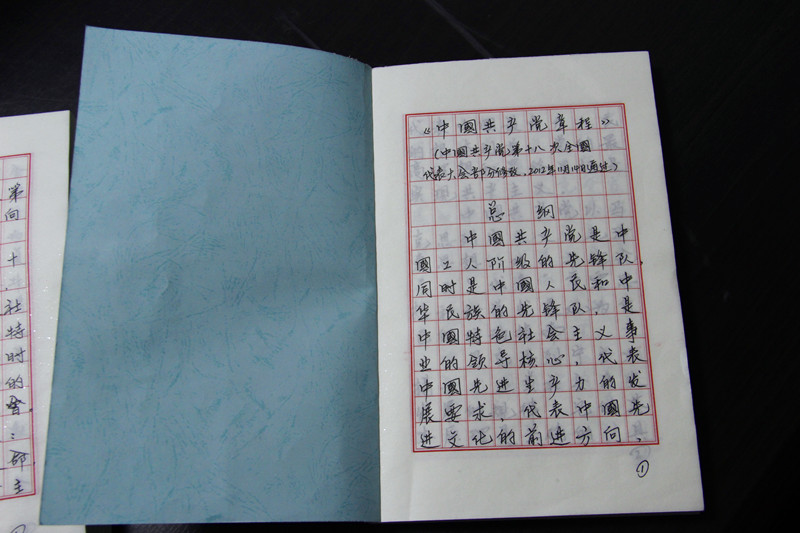 《中國共产党章程》
(中國共产党第十八次全國
代表大会部分修改,2012年11月14日通过)
总纲
中國共产党是中
國工人阶级的先锋队,
同时是中國人民和中
华民族的先锋队,是
中國特色社会主义事
业的领导核心,代表
中國先进生产力的发
展要求,代表中國先
进文化的前进方向,
1
第
向
十
社
特
时
的
部
主